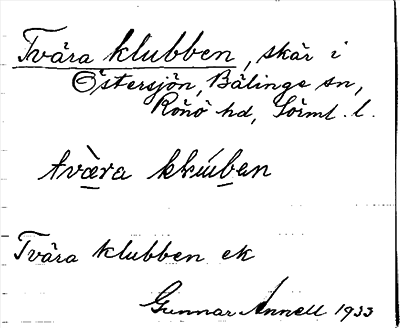 Tvära klubben, skär i
Östersjön, Bälinge sn,
Rönö hd, Sörml. l.
Tvära klubben ek
Gunnar Annell 1933